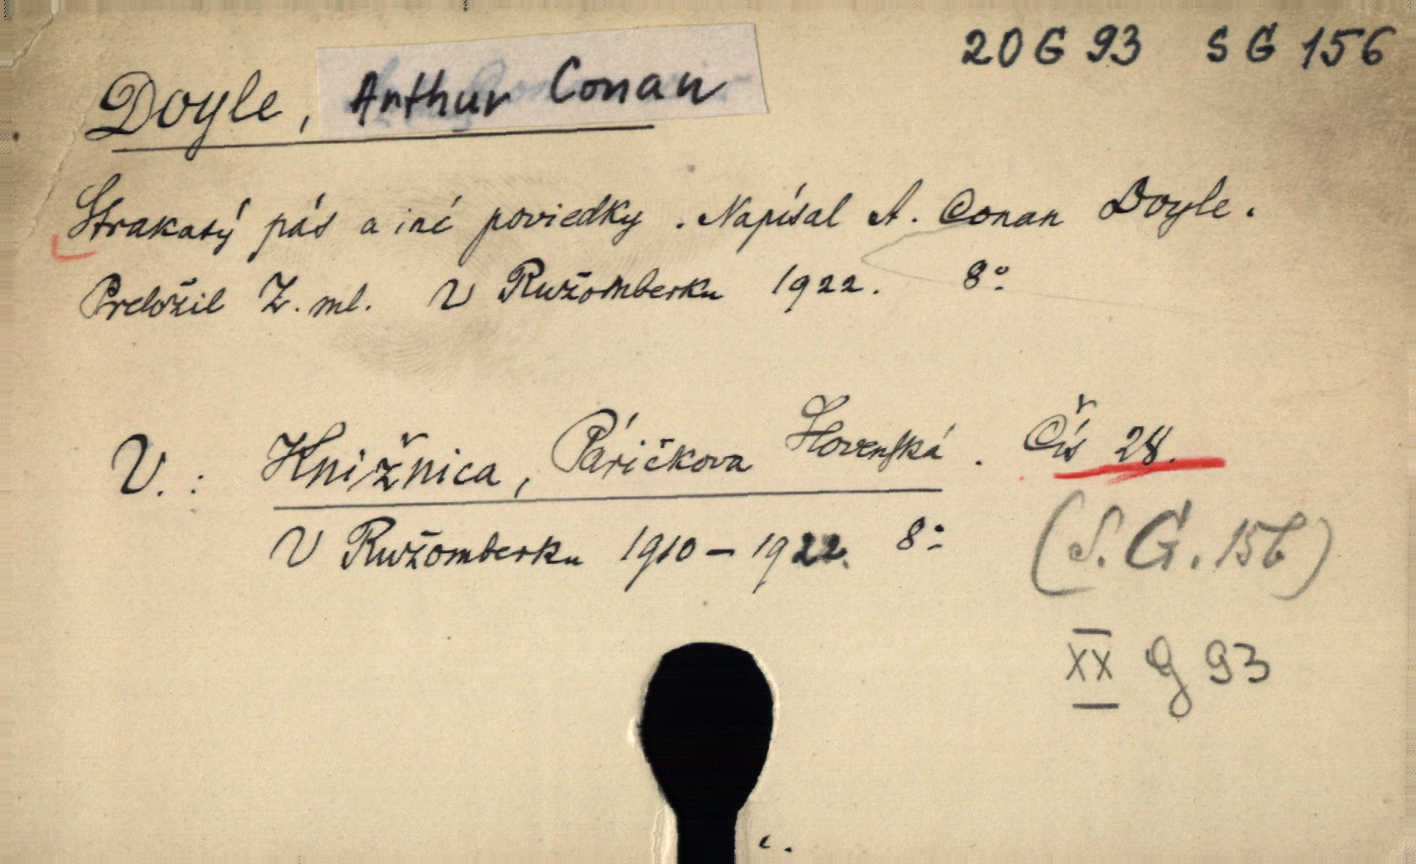 20 G 93 S G 156
Doyle, Arthur Conan
Strakatý pás a iné poviedky. Napísal A. Conan Doyle.
Preložil Z. ml. V Ružomberku 1922. 8°
V.: Knižnica, Páričkova Slovenská. Čís 28.
V Ružomberku 1910-1922. 8°
(S. G. 156)
XX G 93